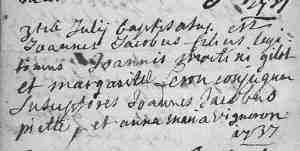 31a Julij baptisatus est
Joannes Jacobus filius legi
timus Joannis martini gilet
et margarita conjugum
Susceptores Joannes Jacobus
piette, et anna maria vigneron
1737